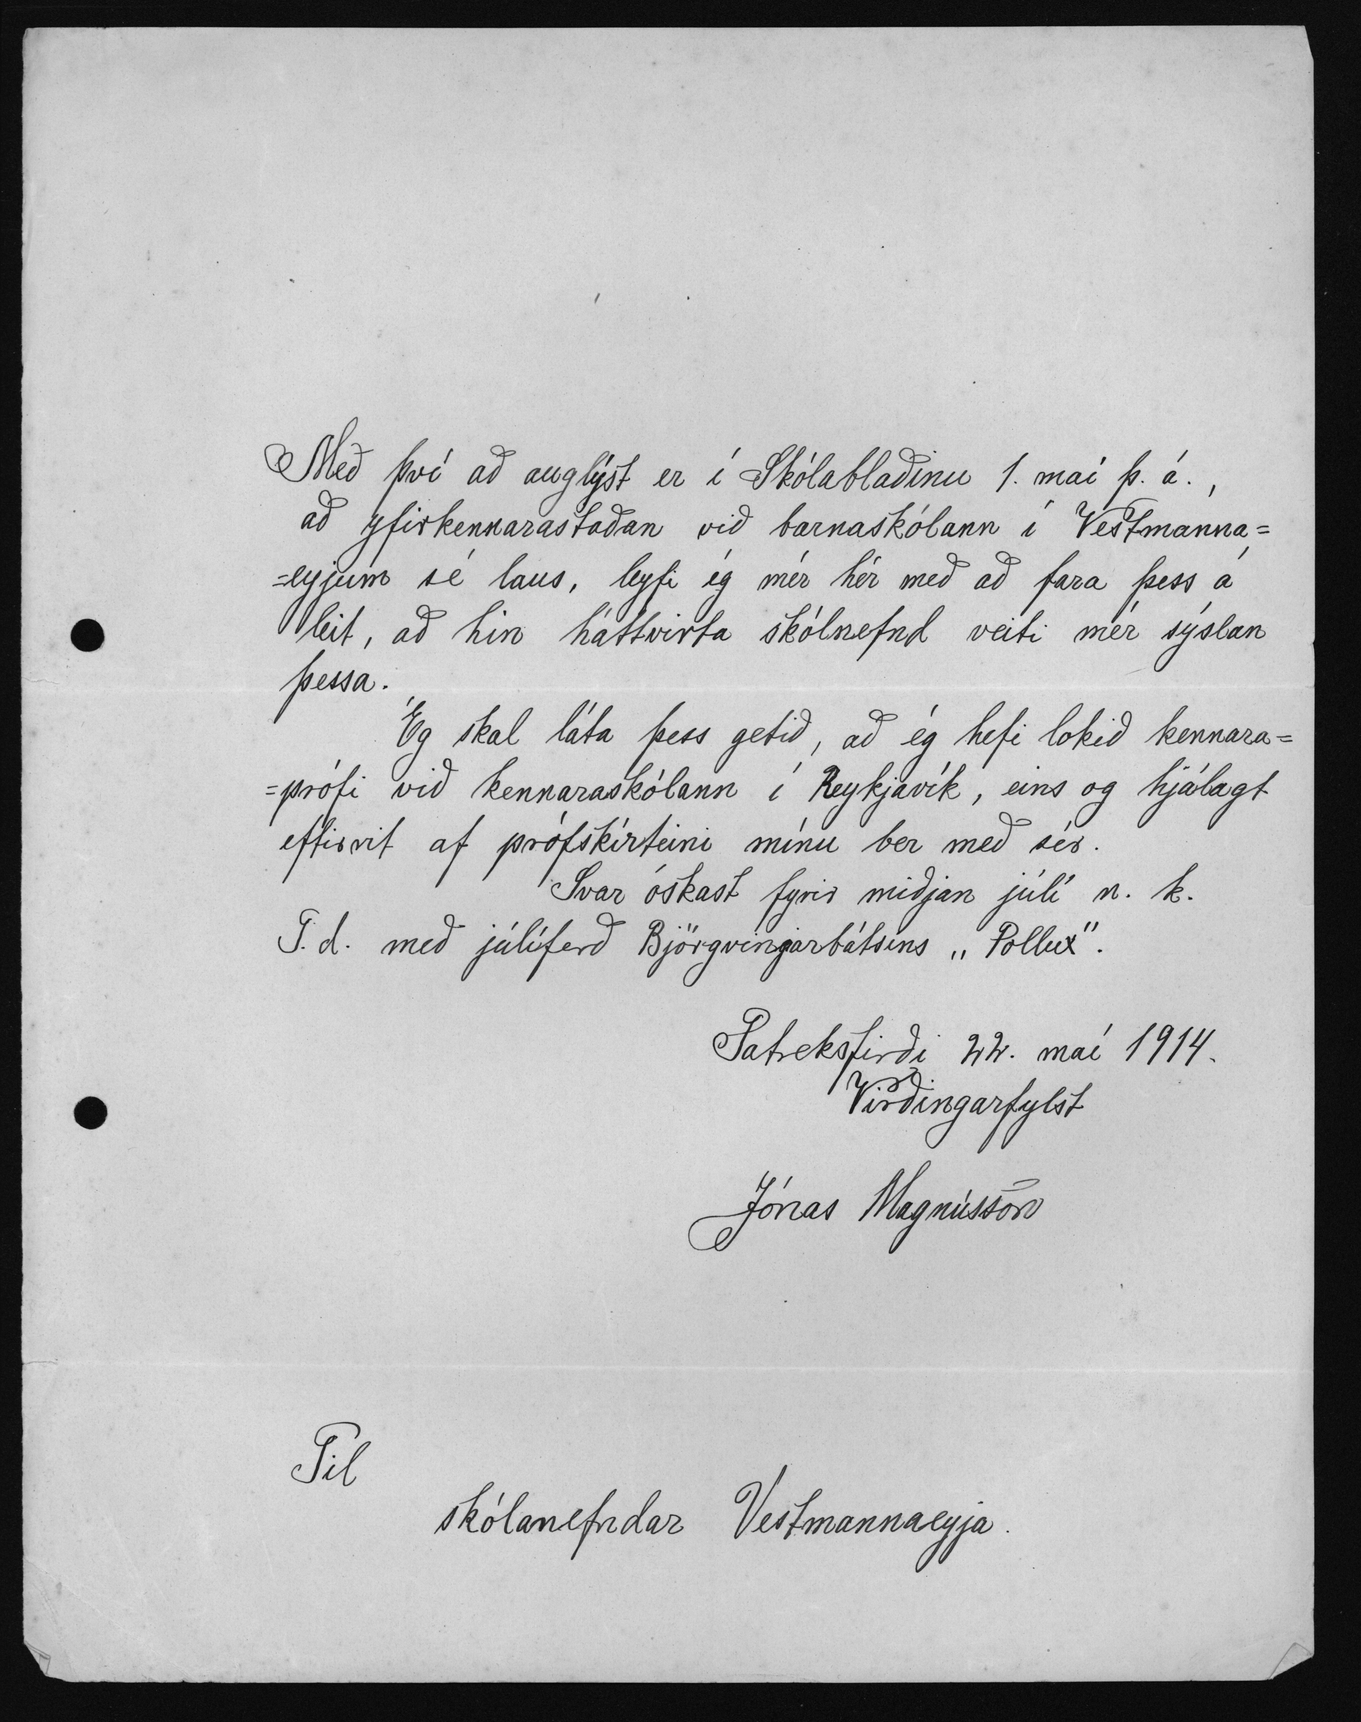 Með því að auglýst er í Skólablaðinu 1. maí þ. á.,
að yfirkennarastaðan við barnaskólann í Vestmanna=
=eyjum sé laus, leyfi ég mér hér með að fara þess á
leit, að hin háttvirta skólnefnd veiti mér sýslan
þessa.
Ég skal láta þess getið, að ég hefi lokið kennara=
=prófi við kennaraskólann í Reykjavík, eins og hjálagt
eftirrit af prófskírteini mínu ber með sér.
Svar óskast fyrir miðjan júlí n. k.
T.d. með júlíferð Björgvinjarbátsins „Pollux".
Patreksfirði 22. maí 1914.
Virðingarfylst
Jónas Magnússon
Til
skólanefndar Vestmannaeyja.